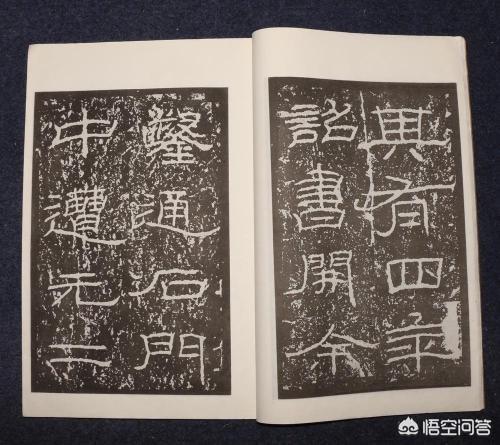 其有四年
詔書開余
鑿通石門
中遭元二
悟空问答